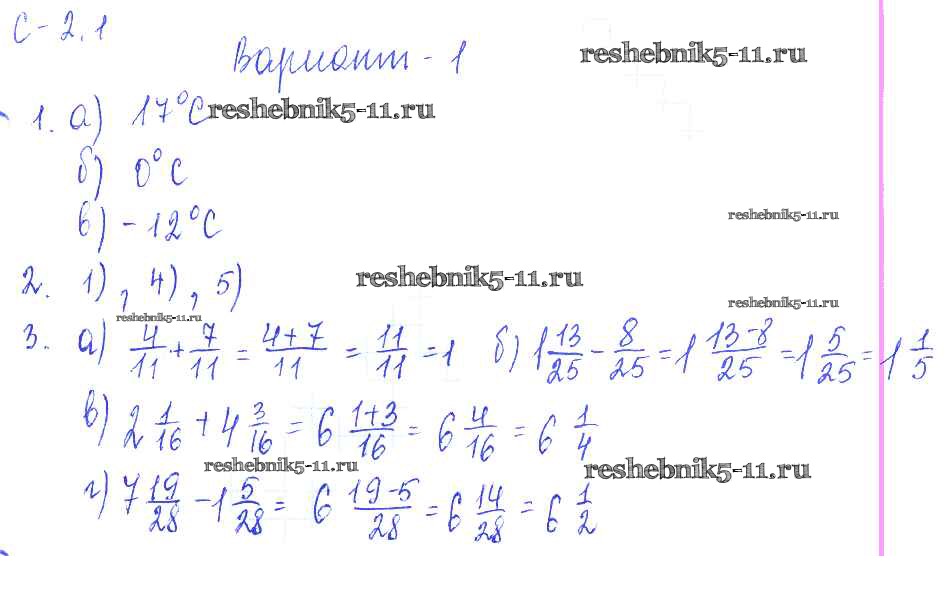 С-2.1
Вариант-1 reshebnik5-11.ru
1. а) 17°С reshebnik5-11.ru
б) 0°С
в) -12°С reshebnik5-11.ru
2. 1), 4), 5) reshebnik5-11.ru
reshebnik5-11.ru
reshebnik5-11.ru
3. а) 4/11 + 7/11 = (4+7)/11 = 11/11 = 1 б) 1 13/25 - 8/25 = 1 (13-8)/25 = 1 5/25 = 1 1/5
в) 2 1/16 + 4 3/16 = 6 (1+3)/16 = 6 4/16 = 6 1/4
reshebnik5-11.ru reshebnik5-11.ru
г) 7 19/28 - 1 5/28 = 6 (19-5)/28 = 6 14/28 = 6 1/2